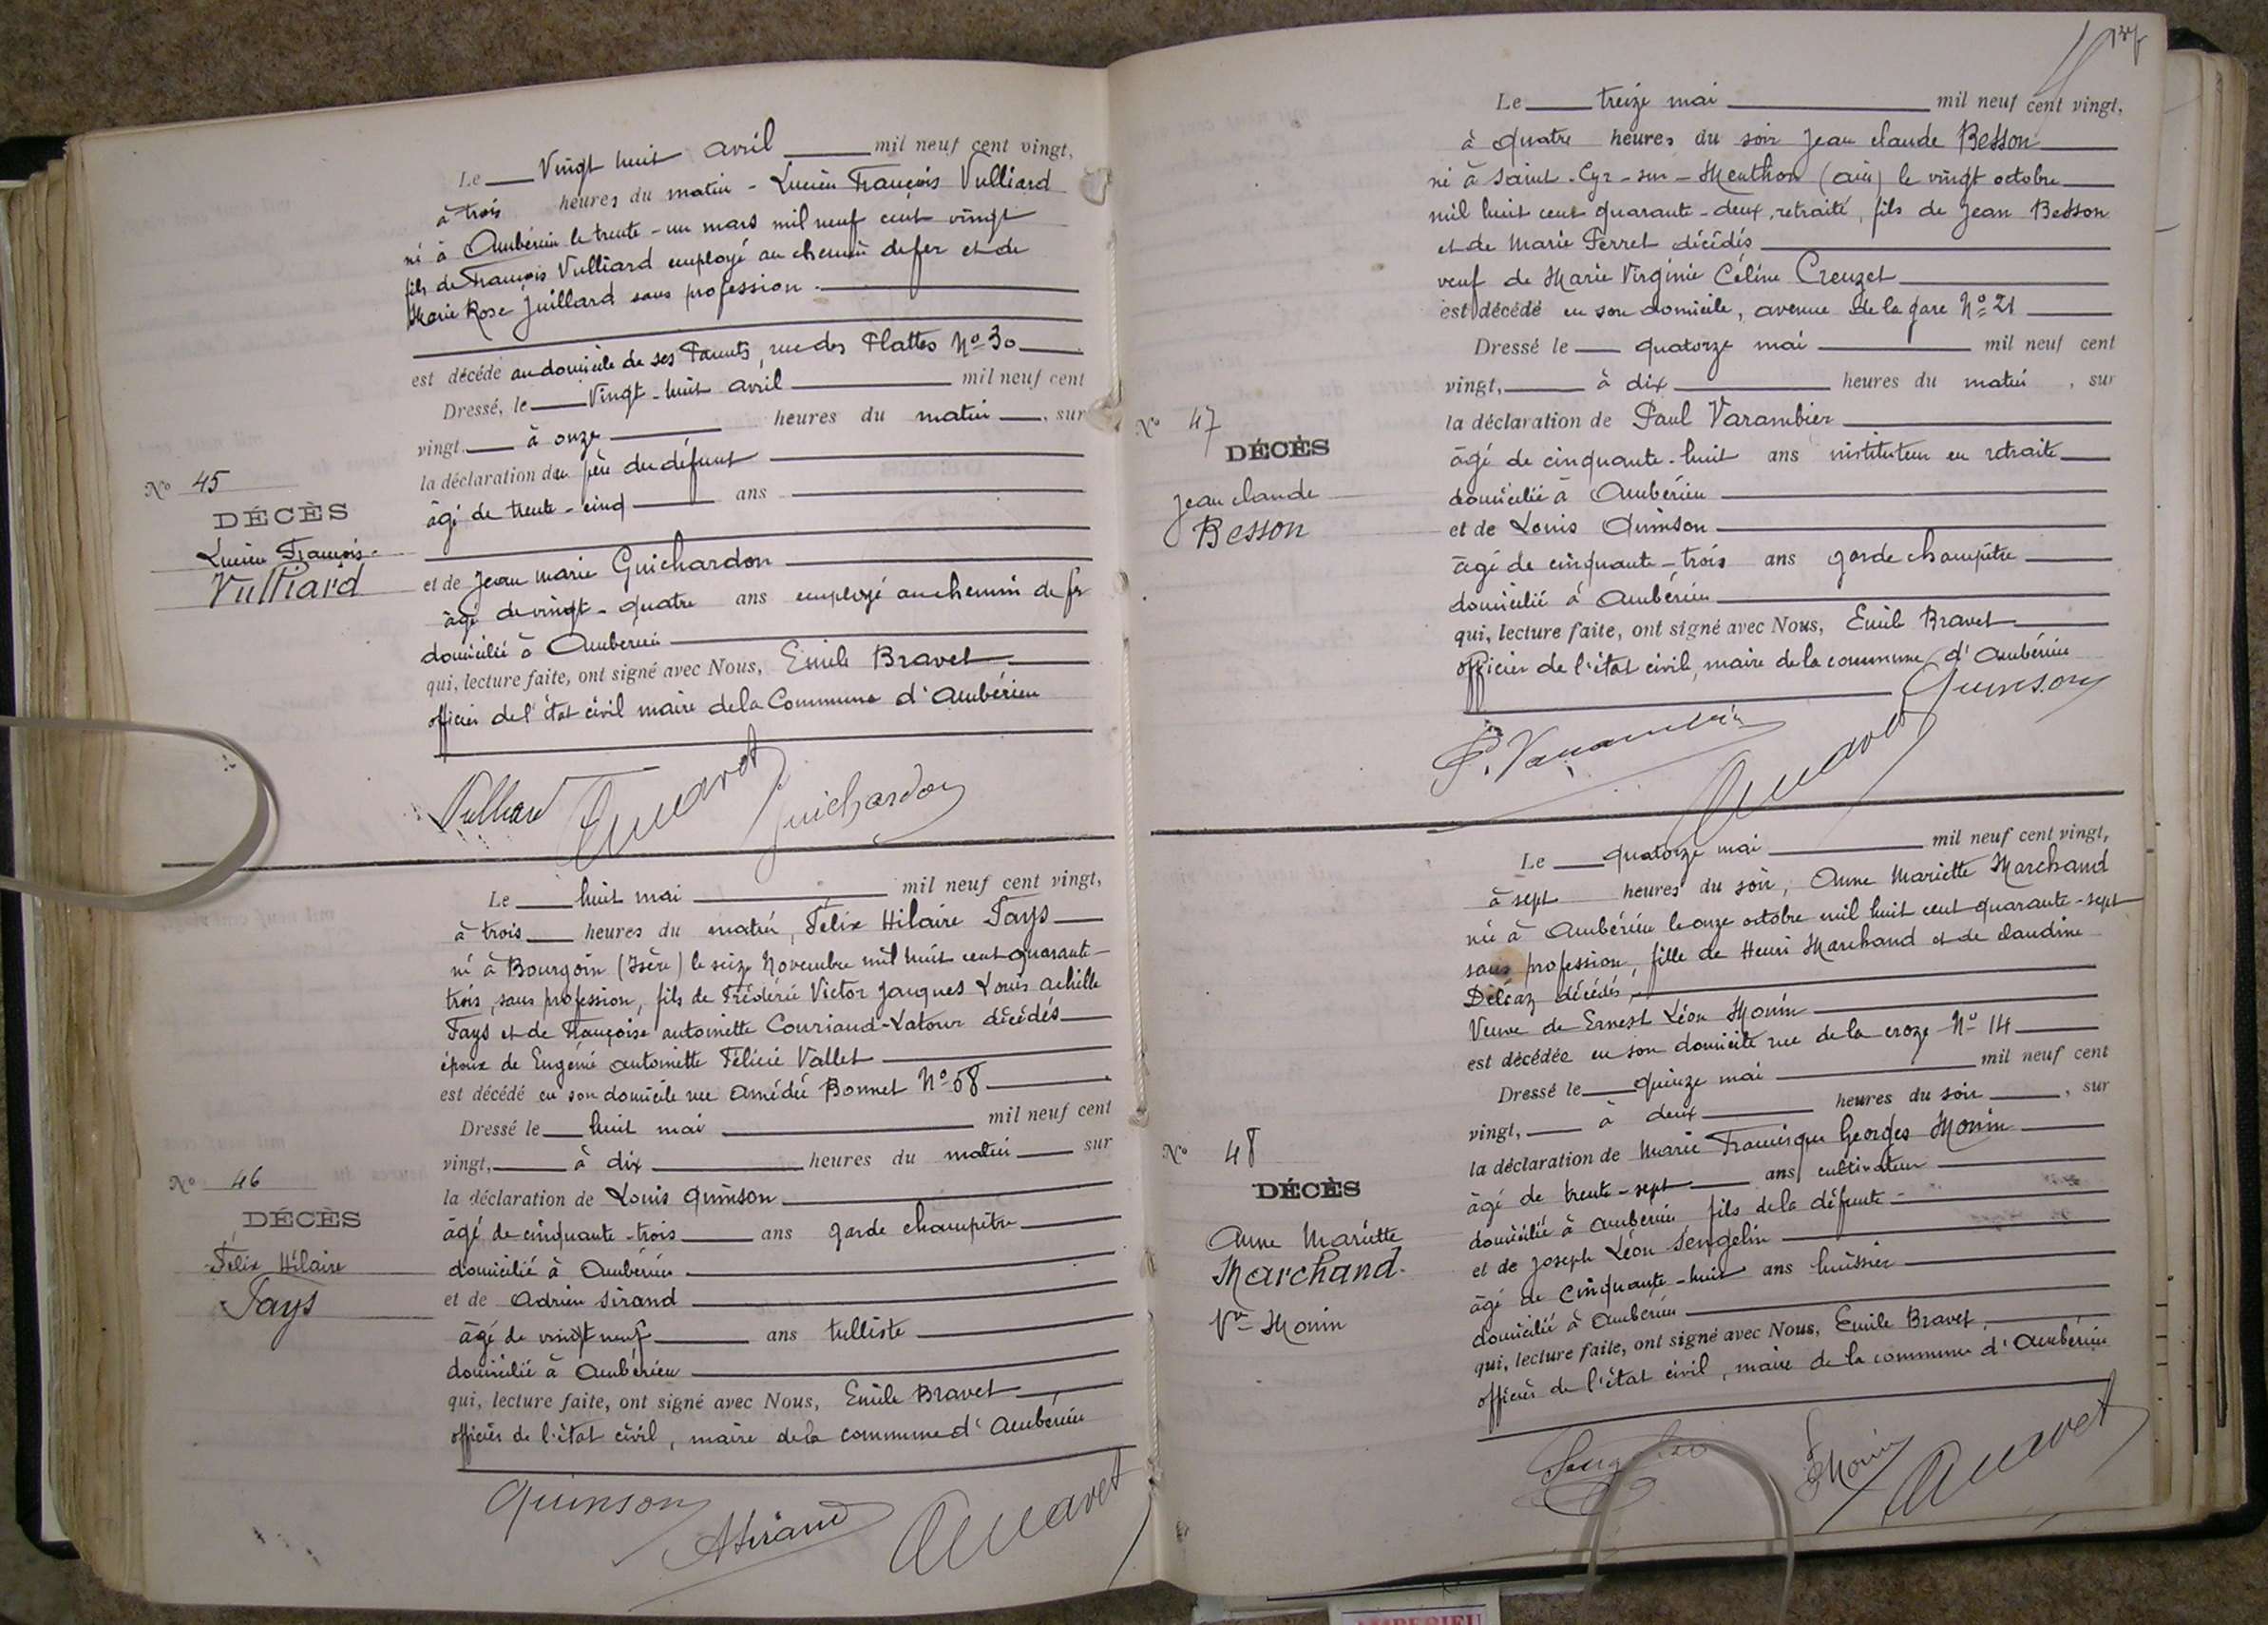 Le Vingt huit avril mil neuf cent vingt,
à trois heures du matin - Lucien François Vulliard
né à Ambérieu le trente-un mars mil neuf cent vingt
fils de François Vulliard employé au chemin de fer et de
Marie Rose Juillard sans profession.
est décédé au domicile de ses Parents, rue des Plattes Nº 30
Dressé, le Vingt-huit avril mil neuf cent
vingt, à onze heures du matin, sur
la déclaration du père du défunt
âgé de trente-cinq ans
et de Jean Marie Guichardon
âgé de vingt-quatre ans employé au chemin de fer
domicilié à Ambérieu
qui, lecture faite, ont signé avec Nous, Emile Bravet
officier de l'état civil maire de la Commune d'Ambérieu
Vulliard Guichardon
Nº 45
DÉCÈS
Lucien François
Vulliard
Le huit mai mil neuf cent vingt,
à trois heures du matin, Félix Hilaire Fays
né à Bourgoin (Isère) le seize Novembre mil huit cent quarante-
trois, sans profession, fils de Frédéric Victor Jacques Louis Achille
Fays et de Françoise Antoinette Couriaud-Latour décédés
époux de Eugénie Antoinette Félicie Vallet
est décédé en son domicile rue Amédée Bonnet Nº 58
Dressé le huit mai mil neuf cent
vingt, à dix heures du matin sur
la déclaration de Louis Quinson
âgé de cinquante-trois ans garde champêtre
domicilié à Ambérieu
et de Adrien Sirand
âgé de vingt neuf ans tulliste
domicilié à Ambérieu
qui, lecture faite, ont signé avec Nous, Emile Bravet
officier de l'état civil, maire de la commune d'Ambérieu
Quinson ASirand
Nº 46
DÉCÈS
Félix Hilaire
Fays
Le treize mai mil neuf cent vingt,
à quatre heures du soir Jean Claude Besson
né à Saint-Cyr-sur-Menthon (Ain) le vingt octobre
mil huit cent quarante-deux, retraité, fils de Jean Besson
et de Marie Ferret décédés
veuf de Marie Virginie Céline Creuzet
est décédé en son domicile, avenue de la gare Nº 21
Dressé le quatorze mai mil neuf cent
vingt, à dix heures du matin, sur
la déclaration de Paul Varambier
âgé de cinquante-huit ans instituteur en retraite
domicilié à Ambérieu
et de Louis Quinson
âgé de cinquante-trois ans garde champêtre
domicilié à Ambérieu
qui, lecture faite, ont signé avec Nous, Emile Bravet
officier de l'état civil, maire de la commune d'Ambérieu
Quinson
P. Varambier
Nº 47
DÉCÈS
Jean Claude
Besson
Le quatorze mai mil neuf cent vingt,
à sept heures du soir, Anne Mariette Marchand
née à Ambérieu le onze octobre mil huit cent quarante-sept
sans profession, fille de Henri Marchand et de Claudine
Déléaz décédés,
Veuve de Ernest Léon Monin
est décédée en son domicile rue de la croze Nº 14
Dressé le quinze mai mil neuf cent
vingt, à deux heures du soir, sur
la déclaration de Marie Francisque Georges Monin
âgé de trente-sept ans cultivateur
domicilié à Ambérieu fils de la défunte
et de Joseph Léon Sengelin
âgé de cinquante-huit ans huissier
domicilié à Ambérieu
qui, lecture faite, ont signé avec Nous, Emile Bravet,
officier de l'état civil, maire de la commune d'Ambérieu
Monin
Nº 48
DÉCÈS
Anne Mariette
Marchand.
Vve Monin